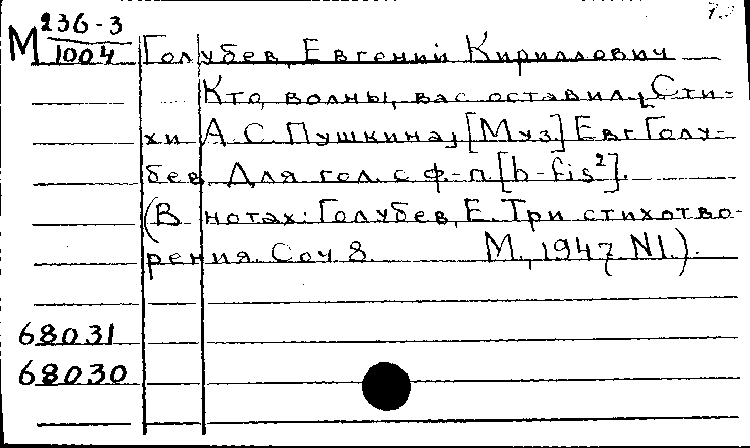 М 236-3
1004
Голубев, Евгений Кириллович
Кто, волны, вас оставил, [Сти-
хи А.С. Пушкина, [Муз.] Евг. Голу-
бев. Для гол. с ф-п [h-fis²].
(В нотах: Голубев, Е. Три стихотво-
рения. Соч. 8. М., 1947, N1.).
68031
68030